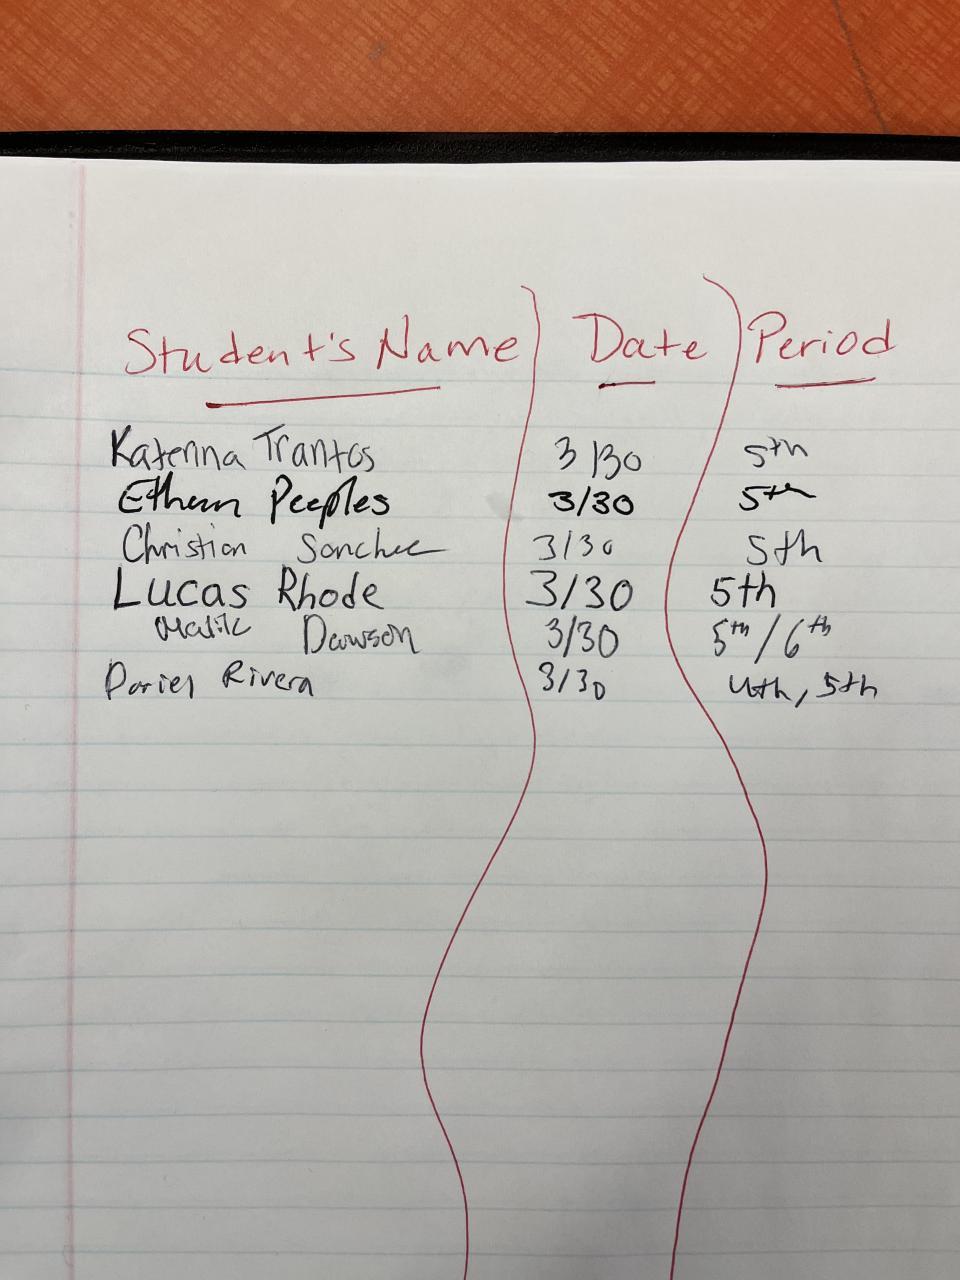 Student's Name Date Period
Katerina Trantos 3/30 5th
Ethan Peeples 3/30 5th
Christian Sanchez 3/30 5th
Lucas Rhode 3/30 5th
Malik Dawson 3/30 5th / 6th
Dariel Rivera 3/30 4th, 5th